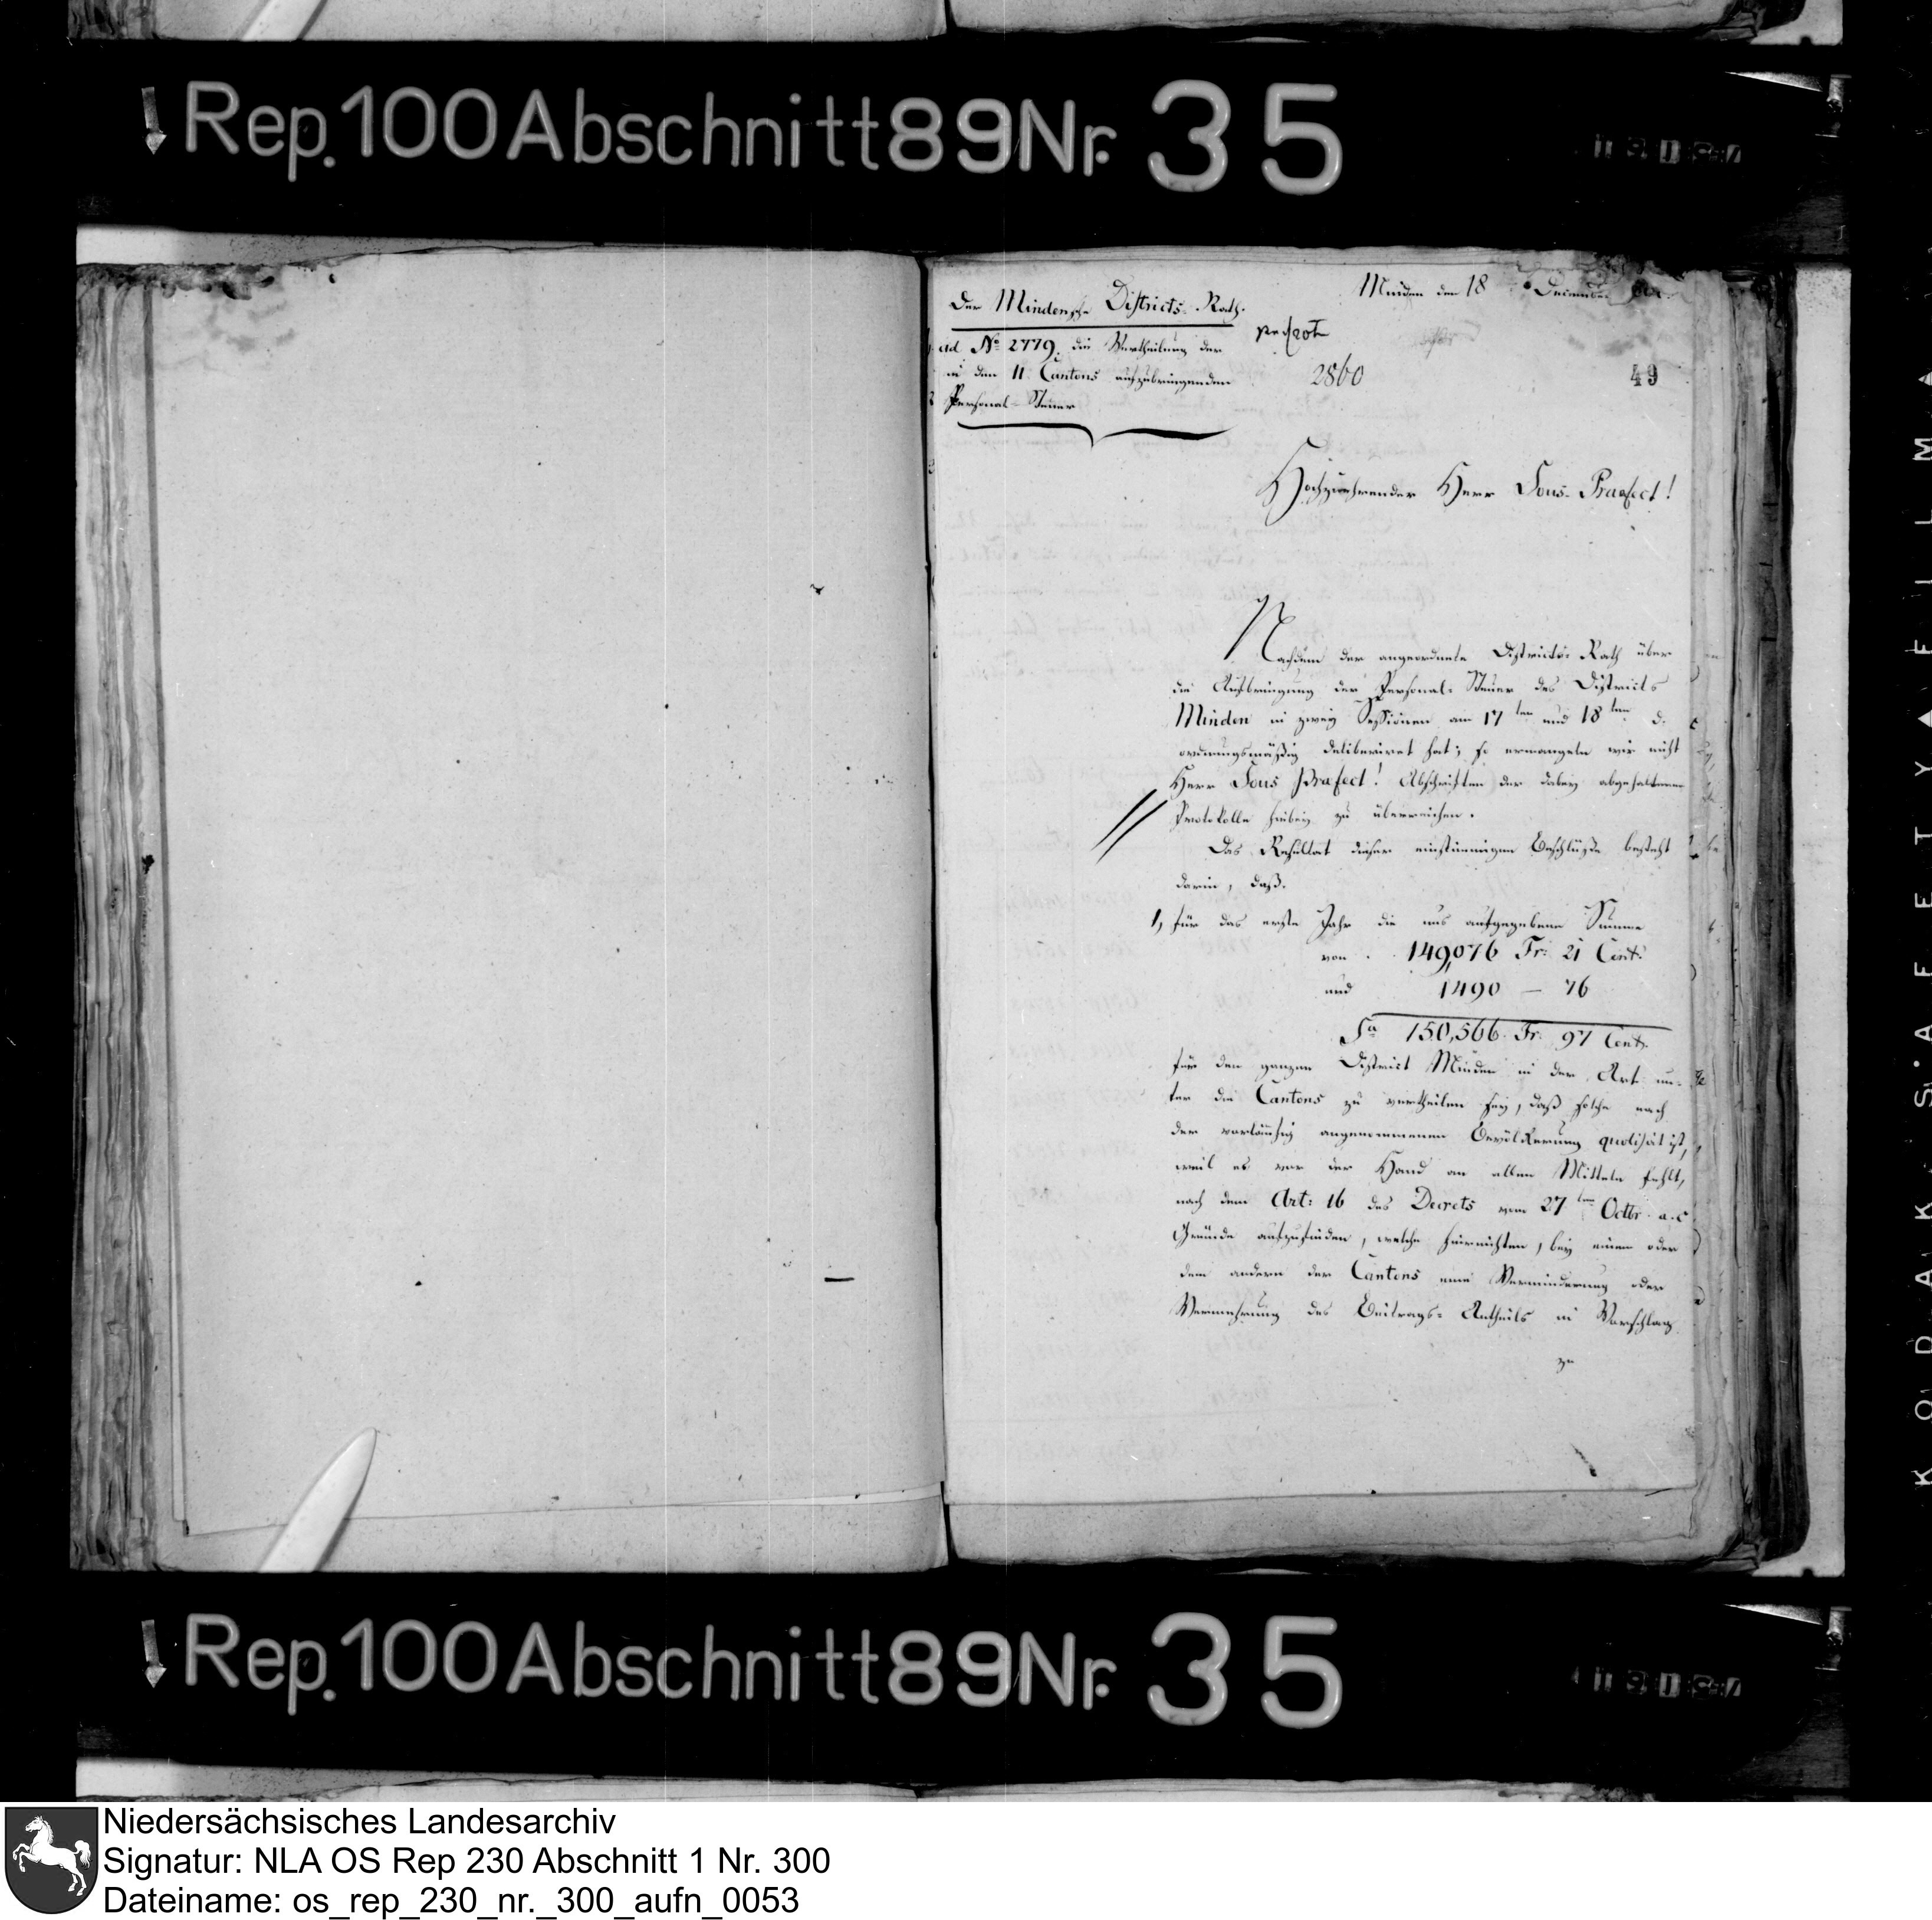 Rep. 100 Abschnitt 89 Nr. 35
Der Mindensche Districts-Rath.
Minden den 18 December
ad No 2779. die Vertheilung der
in den 11 Cantons aufzubringenden
Personal-Steuer
2860
49
Hochzuehrender Herr Sous-Praefect!
Nachdem der angeordnete Districts-Rath über
die Aufbringung der Personal-Steuer des Districts
Minden in zwey Sessionen am 17ten und 18ten d.
ordnungsmäßig deliberiret hat; so ermangeln wir nicht
Herr Sous Praefect! Abschriften der dabey abgehaltenen
Protokolle hiebey zu überreichen.
Das Resultat dieser einstimmigen Beschlüße besteht
darin, daß.
1, für das erste Jahr die uns aufgegebene Summe
von 149,076 Fr: 21 Cent:
und 1490 — 76
Sa 150,566 Fr: 97 Cent.
für den ganzen District Minden in der Art un-
ter die Cantons zu vertheilen sey, daß solche nach
der vorläufig angenommenen Bevölkerung quotisirt ist,
weil es vor der Hand an allen Mitteln fehlt,
nach dem Art: 16 des Decrets vom 27ten Octbr. a. c
Gründe aufzufinden, welche hinreichten, bey einem oder
dem andern der Cantons eine Verminderung oder
Vermehrung des Beitrags-Antheils in Vorschlag
zu
Rep. 100 Abschnitt 89 Nr. 35
KODAK SAFETY FILM
Niedersächsisches Landesarchiv
Signatur: NLA OS Rep 230 Abschnitt 1 Nr. 300
Dateiname: os_rep_230_nr._300_aufn_0053